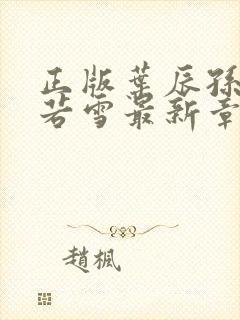 正版葉辰孫
若雪最新章
趙楓